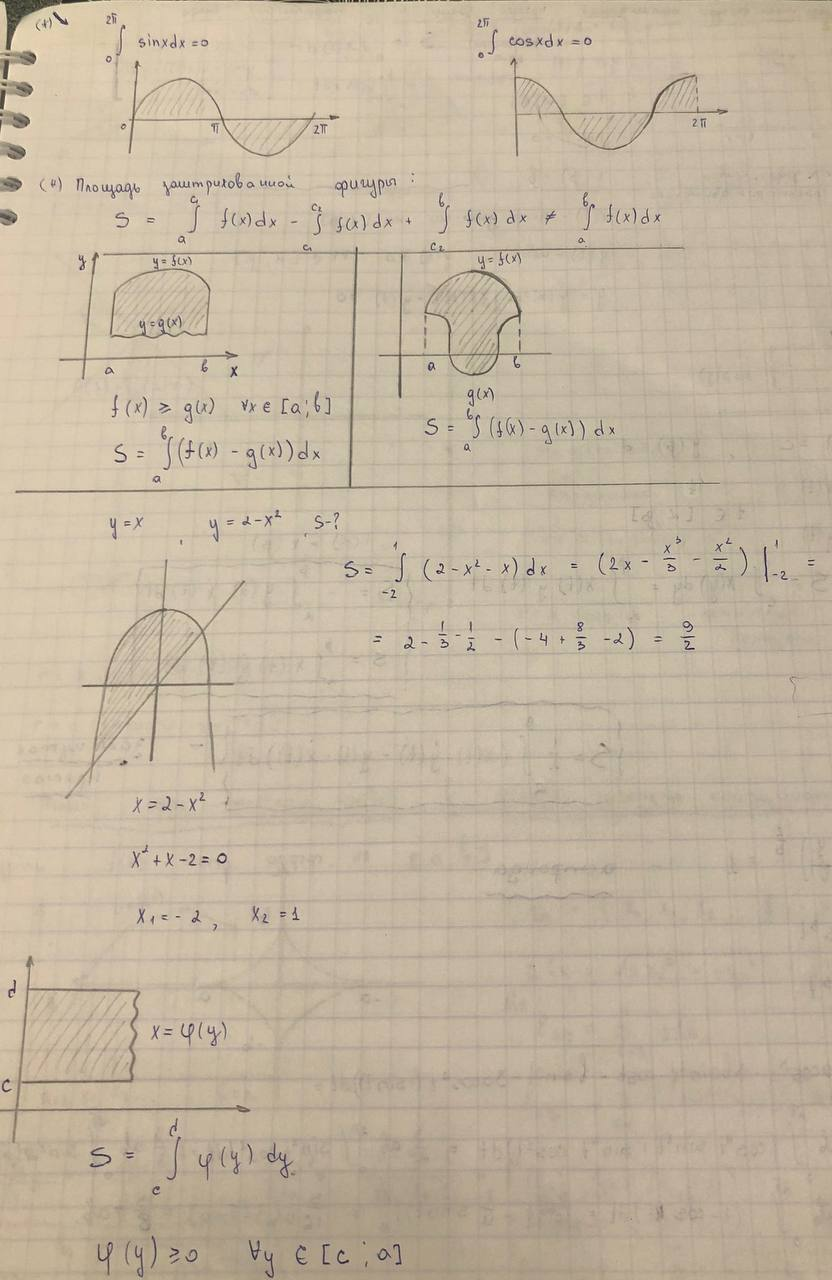 (*)
∫₀^{2π} sinxdx = 0
∫₀^{2π} cosxdx = 0
0 π 2π
2π
(*) Площадь заштрихованной фигуры:
S = ∫ₐ^{c₁} f(x)dx - ∫_{c₁}^{c₂} f(x)dx + ∫_{c₂}^{b} f(x)dx ≠ ∫ₐ^{b} f(x)dx
y
y=f(x)
y=g(x)
a b x
f(x) ≥ g(x) ∀x∈[a;b]
S = ∫ₐ^{b} (f(x) - g(x))dx
y=f(x)
a b
g(x)
S = ∫ₐ^{b} (f(x) - g(x))dx
y=x , y=2-x² , S-?
S = ∫₋₂^{1} (2-x²-x)dx = (2x - x³/3 - x²/2)|₋₂^{1} =
= 2 - 1/3 - 1/2 - (-4 + 8/3 - 2) = 9/2
x=2-x²
x²+x-2=0
x₁=-2, x₂=1
d
x=φ(y)
c
S = ∫_c^{d} φ(y) dy
φ(y)≥0 ∀y ∈ [c;a]